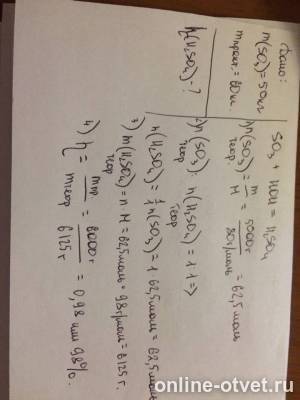 Дано:
m(SO₃)=50кг
mпракт.=60кг.
η(H₂SO₄)-?
SO₃ + HOH = H₂SO₄
1) n(SO₃)теор. = m/M = 5000г / 80г/моль = 62,5 моль
2) n(SO₃)теор : n(H₂SO₄)теор = 1:1 =>
n(H₂SO₄) = 1/1 n(SO₃) = 1·62,5моль = 62,5моль
3) m(H₂SO₄)теор = n·M = 62,5моль · 98г/моль = 6125г.
4) η = mпр. / mтеор = 6000г / 6125г = 0,98 или 98%.
online-otvet.ru